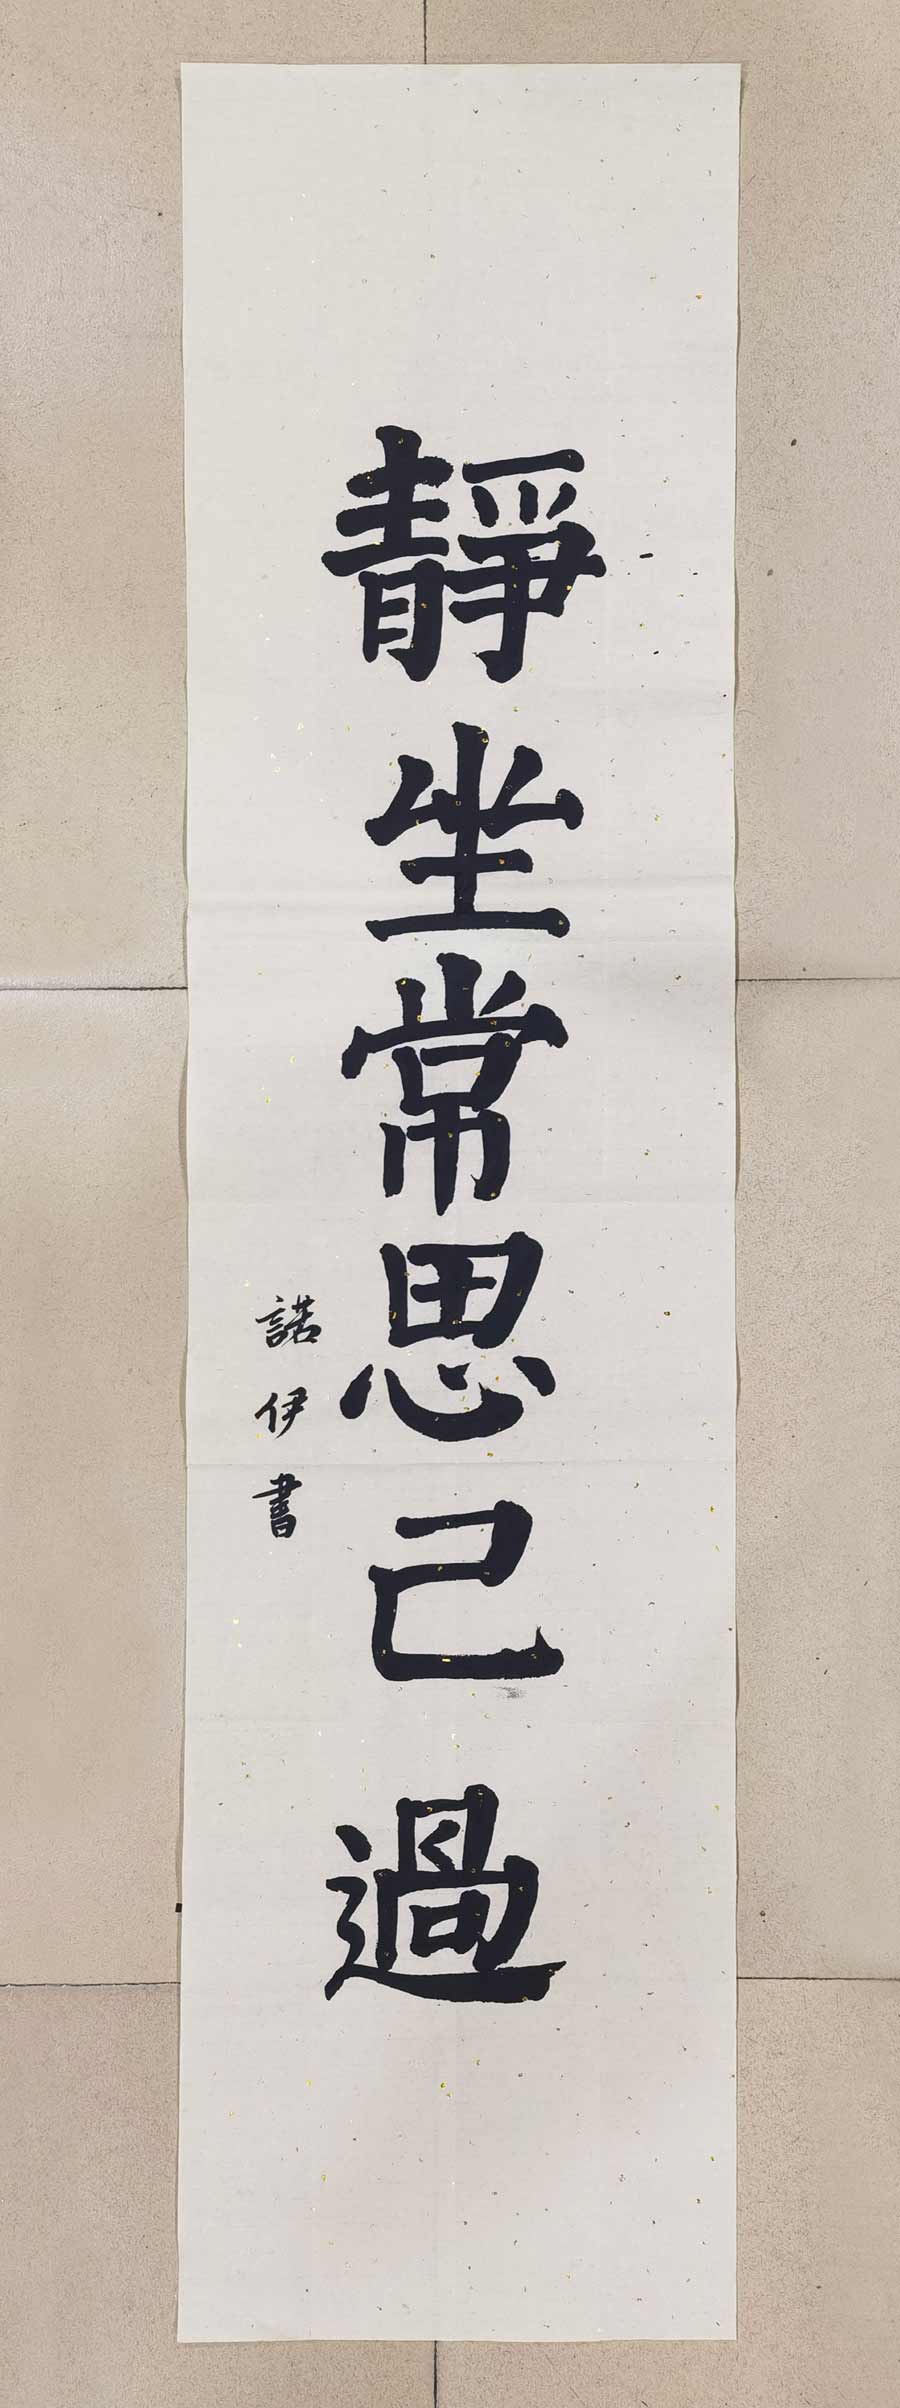 靜坐常思己過
諾伊書